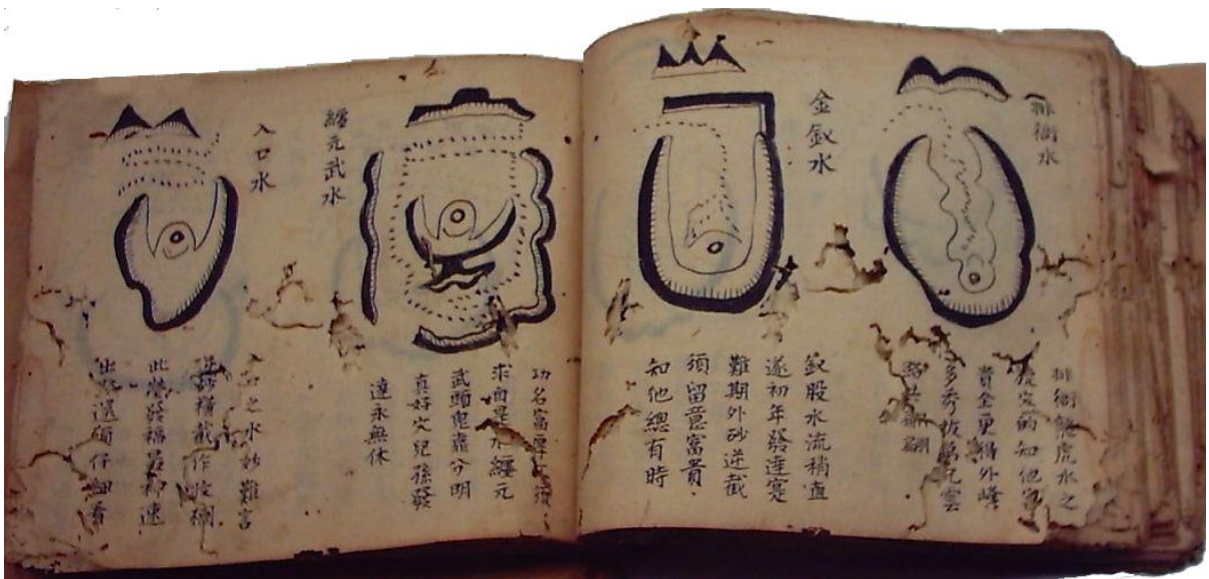 排衙水
排衙龍虎水之
穴的知他富
貴全更得外峰
多秀拔為兄雲
路共翩翩
金釵水
釵股水流稍直
遂初年發達寔
難期外砂逆截
須留意富貴
知他總有時
纏元武水
功名富厚不須
求面是水纏元
武頭鬼肅分明
真好穴兒孫發
達永無休
入口水
入口之水妙難言
砂橫截作波欄
此塋發福最神速
出還須仔細看